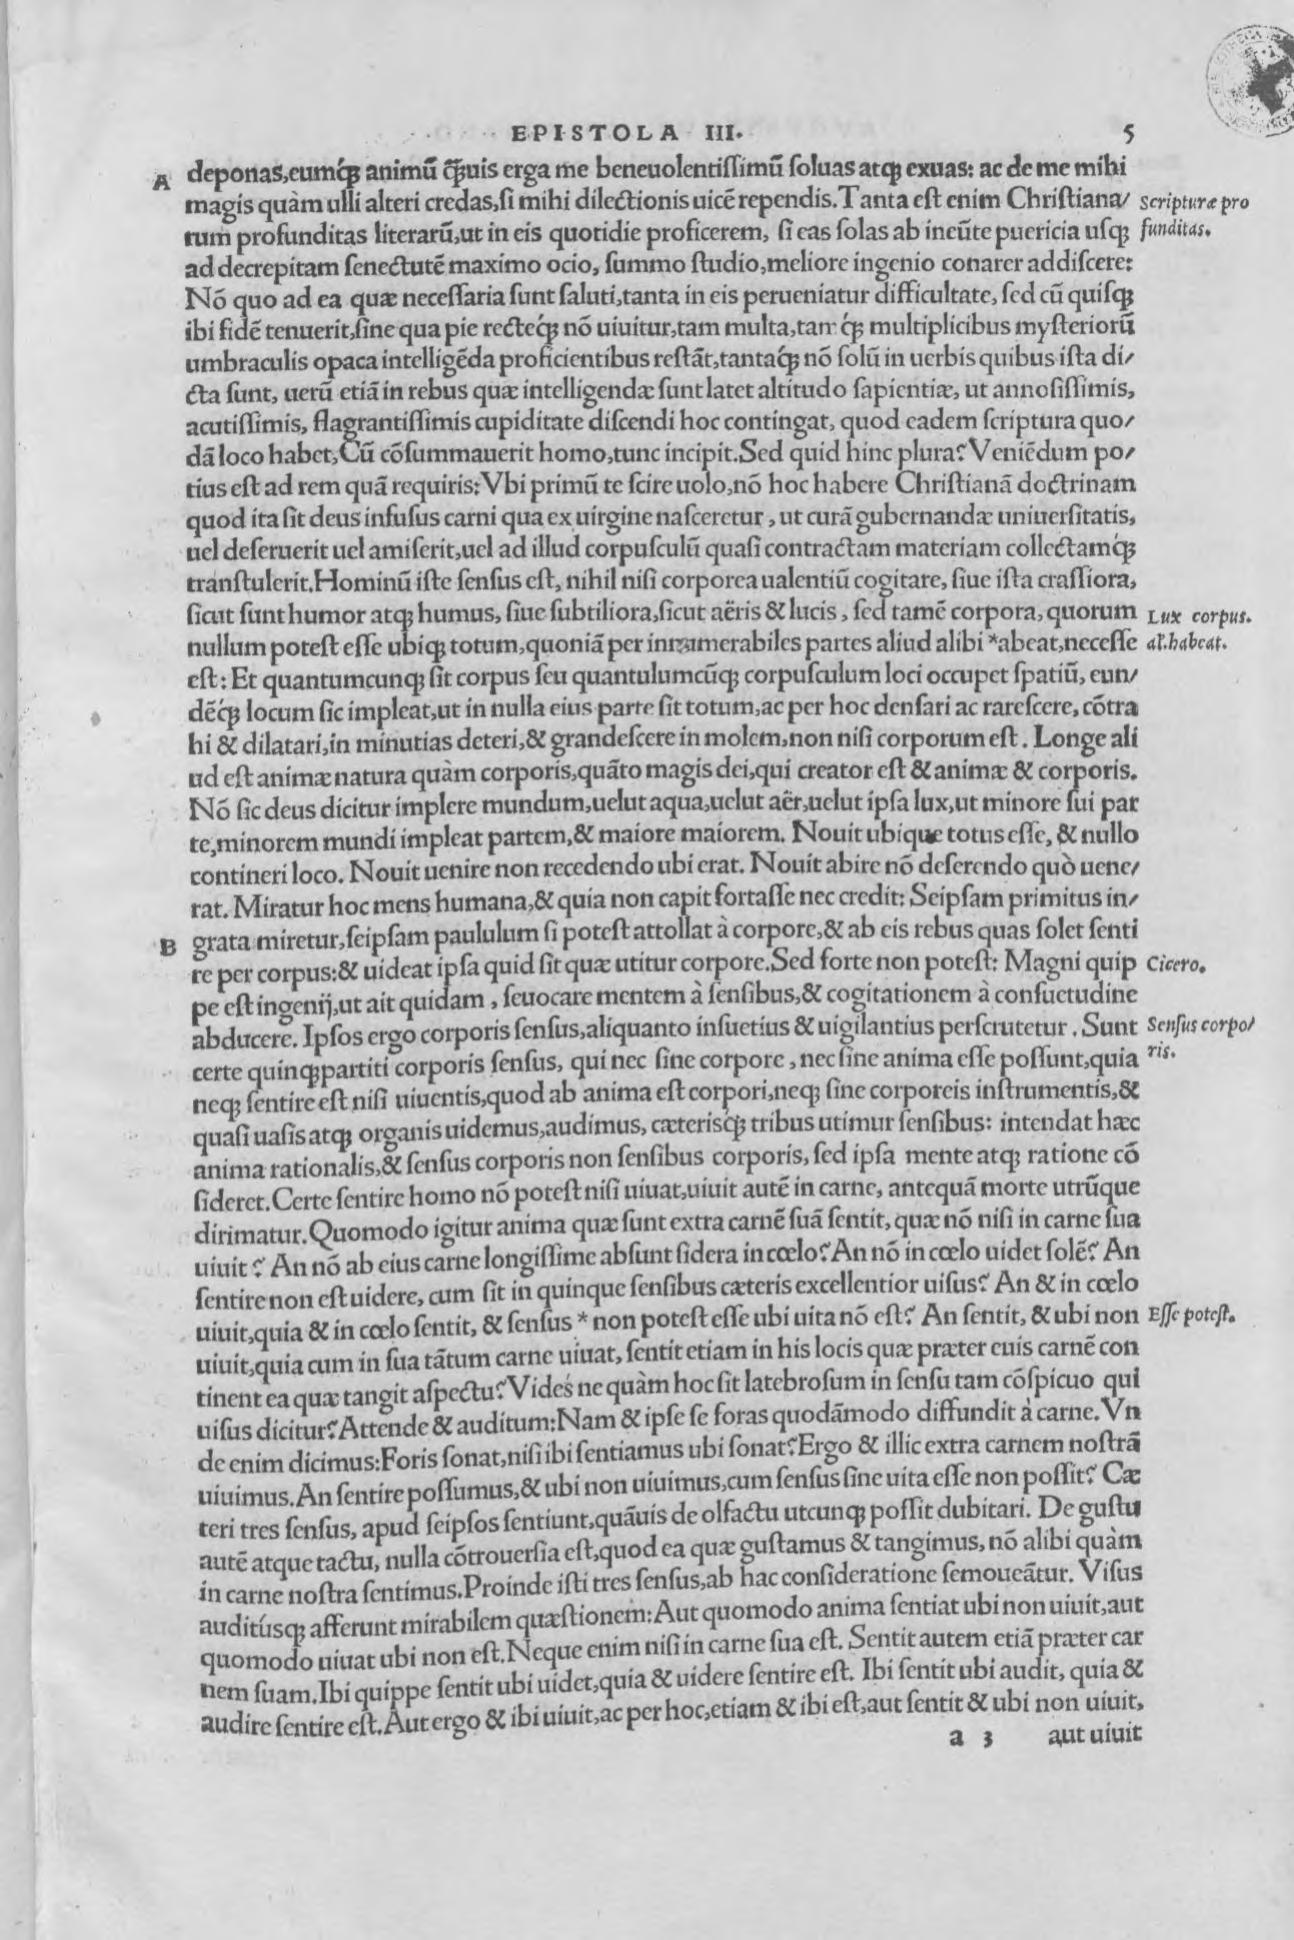 EPISTOLA III. 5
A deponas,eumq́ꝫ animū ꝗ̃uis erga me beneuolentiſſimū ſoluas atqꝫ exuas: ac de me mihi
magis quàm ulli alteri credas,ſi mihi dilectionis uicē rependis.Tanta eſt enim Chriſtiana/ Scripturæ pro
rum profunditas literarū,ut in eis quotidie proficerem, ſi eas ſolas ab ineūte puericia uſqꝫ funditas.
ad decrepitam ſenectutē maximo ocio, ſummo ſtudio,meliore ingenio conarer addiſcere:
Nō quo ad ea quæ neceſſaria ſunt ſaluti,tanta in eis perueniatur difficultate, ſed cū quiſqꝫ
ibi fidē tenuerit,ſine qua pie recteq́ꝫ nō uiuitur,tam multa,tam q́ꝫ multiplicibus myſteriorū
umbraculis opaca intelligēda proficientibus reſtāt,tantaq́ꝫ nō ſolū in uerbis quibus iſta di/
cta ſunt, uerū etiā in rebus quæ intelligendæ ſunt latet altitudo ſapientiæ, ut annoſiſſimis,
acutiſſimis, flagrantiſſimis cupiditate diſcendi hoc contingat, quod eadem ſcriptura quo/
dā loco habet,Cū cōſummauerit homo,tunc incipit.Sed quid hinc plura? Veniēdum po/
tius eſt ad rem quā requiris:Vbi primū te ſcire uolo,nō hoc habere Chriſtianā doctrinam
quod ita ſit deus infuſus carni qua ex uirgine naſceretur, ut curā gubernandæ uniuerſitatis,
uel deſeruerit uel amiſerit,uel ad illud corpuſculū quaſi contractam materiam collectamq́ꝫ
tranſtulerit.Hominū iſte ſenſus eſt, nihil niſi corporea ualentiū cogitare, ſiue iſta craſſiora,
ſicut ſunt humor atqꝫ humus, ſiue ſubtiliora,ſicut aëris & lucis, ſed tamē corpora, quorum Lux corpus.
nullum poteſt eſſe ubiqꝫ totum,quoniā per innumerabiles partes aliud alibi *abeat,neceſſe al.habeat.
eſt: Et quantumcunqꝫ ſit corpus ſeu quantulumcūqꝫ corpuſculum loci occupet ſpatiū, eun/
dēq́ꝫ locum ſic impleat,ut in nulla eius parte ſit totum,ac per hoc denſari ac rareſcere, cōtra
hi & dilatari,in minutias deteri,& grandeſcere in molem,non niſi corporum eſt. Longe ali
ud eſt animæ natura quàm corporis,quāto magis dei,qui creator eſt & animæ & corporis.
Nō ſic deus dicitur implere mundum,uelut aqua,uelut aër,uelut ipſa lux,ut minore ſui par
te,minorem mundi impleat partem,& maiore maiorem. Nouit ubique totus eſſe, & nullo
contineri loco. Nouit uenire non recedendo ubi erat. Nouit abire nō deſerendo quò uene/
rat. Miratur hoc mens humana,& quia non capit fortaſſe nec credit: Seipſam primitus in/
B grata miretur,ſeipſam paululum ſi poteſt attollat à corpore,& ab eis rebus quas ſolet ſenti
re per corpus:& uideat ipſa quid ſit quæ utitur corpore.Sed forte non poteſt: Magni quip Cicero.
pe eſt ingenij,ut ait quidam, ſeuocare mentem à ſenſibus,& cogitationem à conſuetudine
abducere. Ipſos ergo corporis ſenſus,aliquanto inſuetius & uigilantius perſcrutetur. Sunt Senſus corpo/
certe quinqꝫpartiti corporis ſenſus, qui nec ſine corpore, nec ſine anima eſſe poſſunt,quia ris.
neqꝫ ſentire eſt niſi uiuentis,quod ab anima eſt corpori,neqꝫ ſine corporeis inſtrumentis,&
quaſi uaſis atqꝫ organis uidemus,audimus, cæterisq́ꝫ tribus utimur ſenſibus: intendat hæc
anima rationalis,& ſenſus corporis non ſenſibus corporis, ſed ipſa mente atqꝫ ratione cō
ſideret.Certe ſentire homo nō poteſt niſi uiuat,uiuit autē in carne, antequā morte utrūque
dirimatur.Quomodo igitur anima quæ ſunt extra carnē ſuā ſentit, quæ nō niſi in carne ſua
uiuit? An nō ab eius carne longiſſime abſunt ſidera in cœlo? An nō in cœlo uidet ſolē? An
ſentire non eſt uidere, cum ſit in quinque ſenſibus cæteris excellentior uiſus? An & in cœlo
uiuit,quia & in cœlo ſentit, & ſenſus * non poteſt eſſe ubi uita nō eſt? An ſentit, & ubi non Eſſe poteſt.
uiuit,quia cum in ſua tātum carne uiuat, ſentit etiam in his locis quæ præter euis carnē con
tinent ea quæ tangit aſpectu? Vides ́ne quàm hoc ſit latebroſum in ſenſu tam cōſpicuo qui
uiſus dicitur? Attende & auditum:Nam & ipſe ſe foras quodāmodo diffundit à carne. Vn
de enim dicimus:Foris ſonat,niſi ibi ſentiamus ubi ſonat? Ergo & illic extra carnem noſtrā
uiuimus.An ſentire poſſumus,& ubi non uiuimus,cum ſenſus ſine uita eſſe non poſſit? Cæ
teri tres ſenſus, apud ſeipſos ſentiunt,quāuis de olfactu utcunqꝫ poſſit dubitari. De guſtu
autē atque tactu, nulla cōtrouerſia eſt,quod ea quæ guſtamus & tangimus, nō alibi quàm
in carne noſtra ſentimus.Proinde iſti tres ſenſus,ab hac conſideratione ſemoueātur. Viſus
auditúsqꝫ afferunt mirabilem quæſtionem:Aut quomodo anima ſentiat ubi non uiuit,aut
quomodo uiuat ubi non eſt.Neque enim niſi in carne ſua eſt. Sentit autem etiā præter car
nem ſuam.Ibi quippe ſentit ubi uidet,quia & uidere ſentire eſt. Ibi ſentit ubi audit, quia &
audire ſentire eſt.Aut ergo & ibi uiuit,ac per hoc,etiam & ibi eſt,aut ſentit & ubi non uiuit,
a 3 aut uiuit